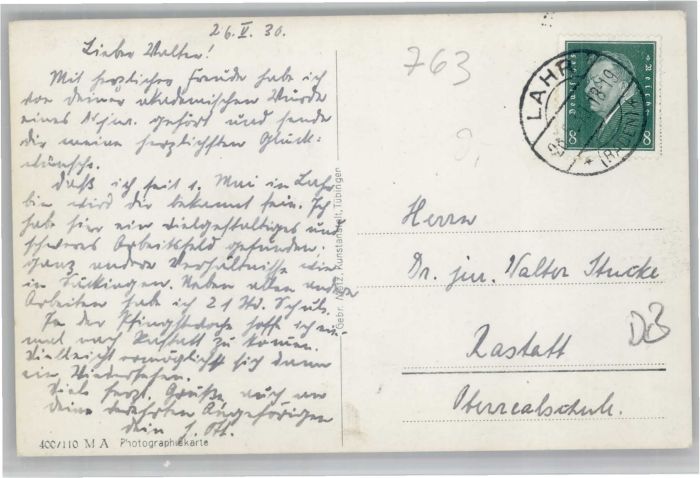 26.V.30.
Lieber Walter!
Mit herzlicher Freude habe ich
von deiner akademischen Würde
eines Dr jur. gehört und sende
dir meine herzlichsten Glück-
wünsche.
Daß ich seit 1. Mai in Lahr
bin wird dir bekannt sein. Ich
habe hier ein vielgestaltiges und
schweres Arbeitsfeld gefunden.
Ganz andere Verhältnisse wie
in Säckingen. Neben allen anderen
Arbeiten hab ich 21 Std. Schule.
In der Pfingstwoche hoffe ich ein-
mal nach Rastatt zu kommen.
Vielleicht ermöglicht sich dann
ein Wiedersehen.
Viele herzl. Grüße auch an
deine verehrten Angehörigen
dein J. Ott.
400/110 M A Photographiekarte
Gebr. Metz, Kunstanstalt, Tübingen
763
LAHR
(BADEN)
Deutsches Reich
8 8
Herrn
Dr. jur. Walter Stucke
Rastatt
Oberrealschule.